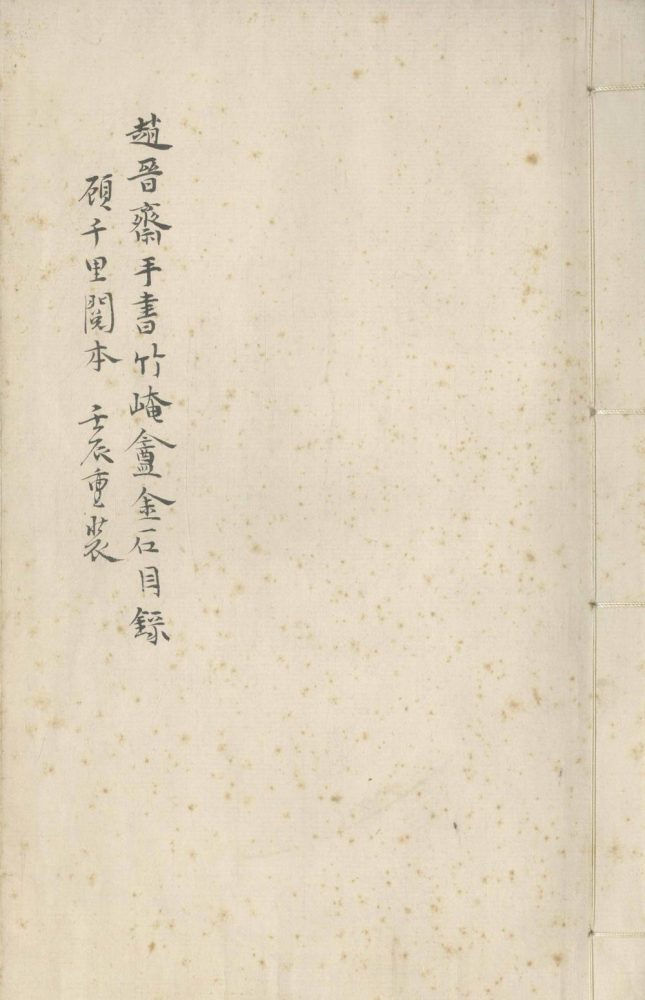 趙晉齋手書竹崦盦金石目錄
顧千里閱本 壬辰重裝